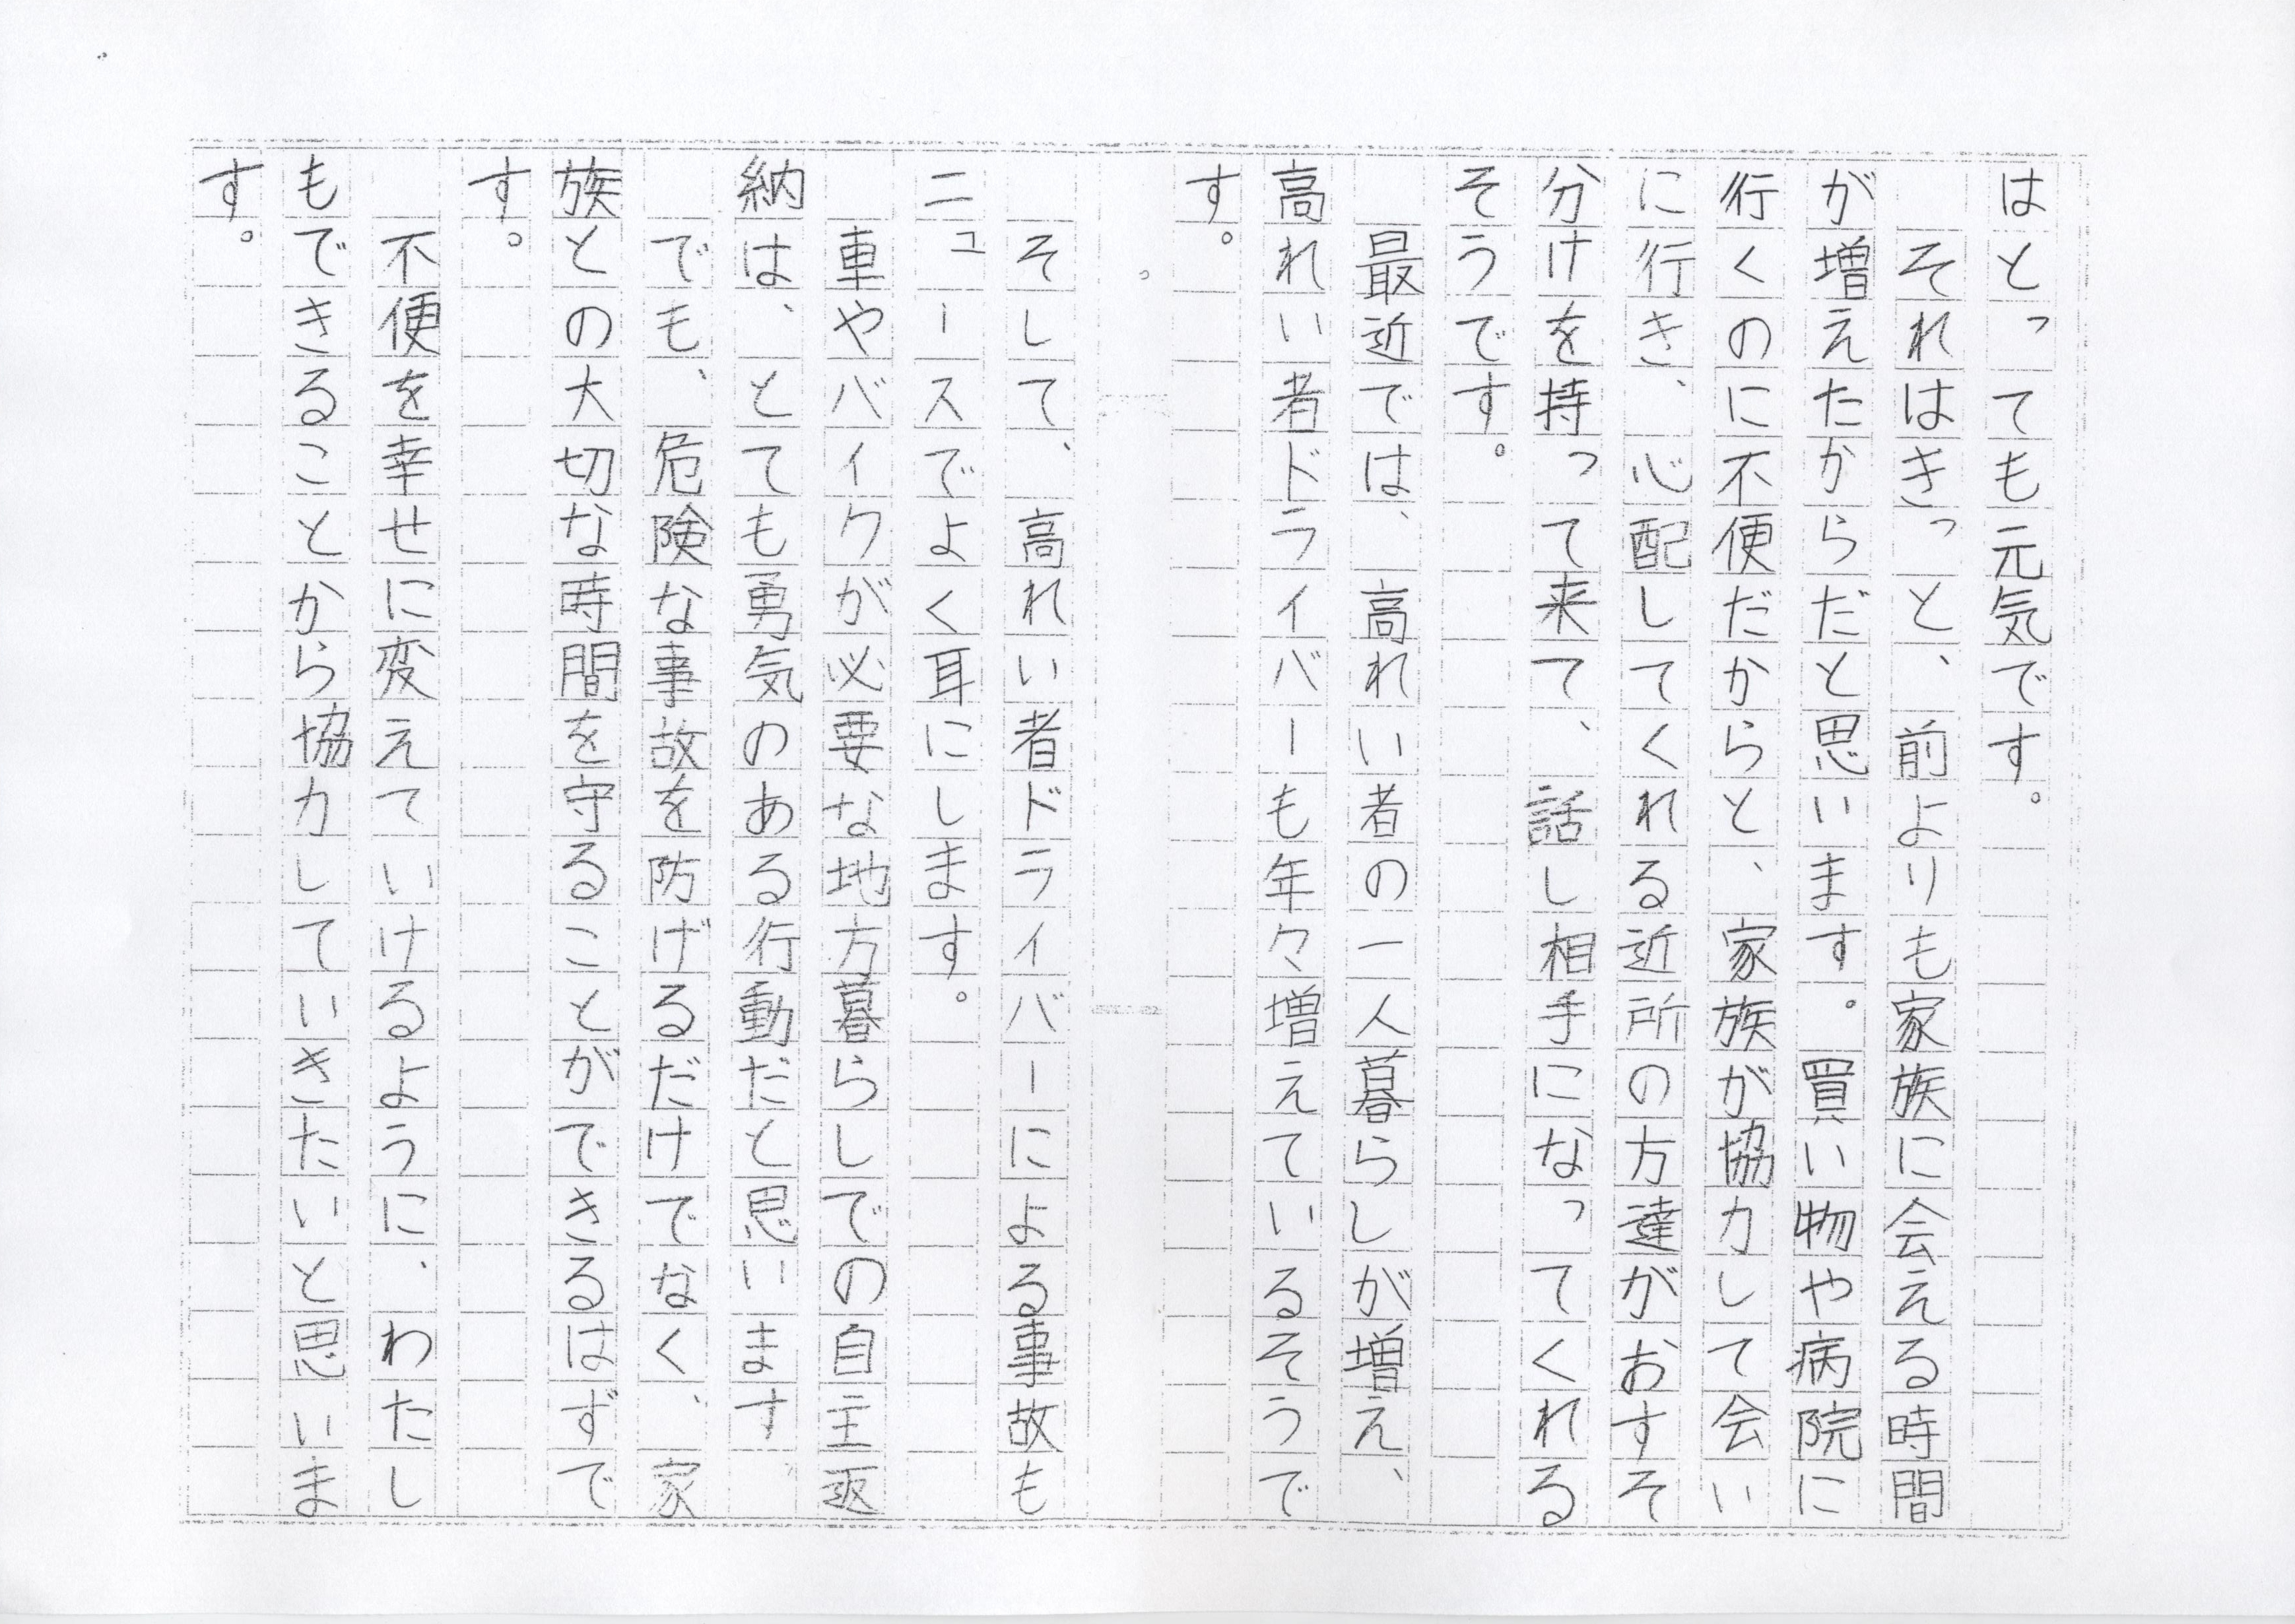 はとっても元気です。
それはきっと、前よりも家族に会える時間
が増えたからだと思います。買い物や病院に
行くのに不便だからと、家族が協力して会い
に行き、心配してくれる近所の方達がおすそ
分けを持って来て、話し相手になってくれる
そうです。
最近では、高れい者の一人暮らしが増え、
高れい者ドライバーも年々増えているそうで
す。
そして、高れい者ドライバーによる事故も
ニュースでよく耳にします。
車やバイクが必要な地方暮らしでの自主返
納は、とても勇気のある行動だと思います
でも、危険な事故を防げるだけでなく、家
族との大切な時間を守ることができるはずで
す。
不便を幸せに変えていけるように、わたし
もできることから協力していきたいと思いま
す。